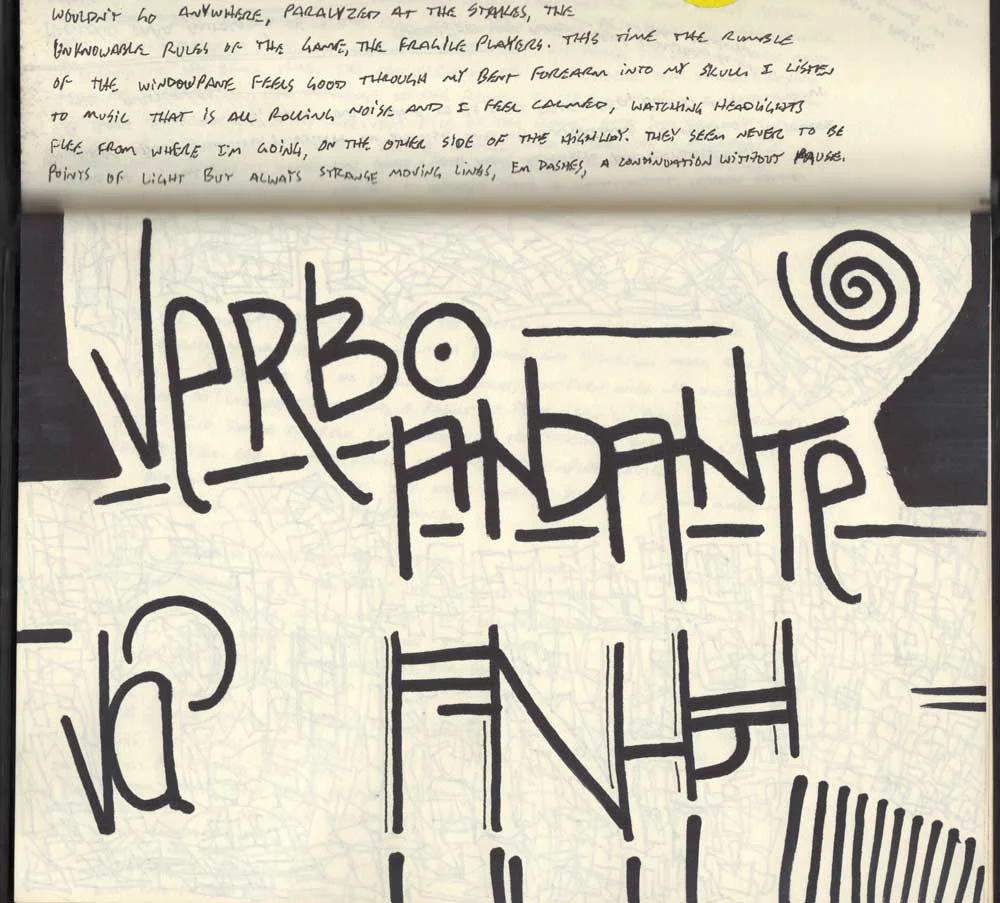 WOULDN'T GO ANYWHERE, PARALYZED AT THE STAKES, THE
UNKNOWABLE RULES OF THE GAME, THE FRAGILE PLAYERS. THIS TIME THE RUMBLE
OF THE WINDOWPANE FEELS GOOD THROUGH MY BENT FOREARM INTO MY SKULL I LISTEN
TO MUSIC THAT IS ALL ROLLING NOISE AND I FEEL CALMED, WATCHING HEADLIGHTS
FLEE FROM WHERE I'M GOING, ON THE OTHER SIDE OF THE HIGHWAY. THEY SEEM NEVER TO BE
POINTS OF LIGHT BUT ALWAYS STRANGE MOVING LINES, EM DASHES, A CONTINUATION WITHOUT PAUSE.
VERBO
ANDANTE
va